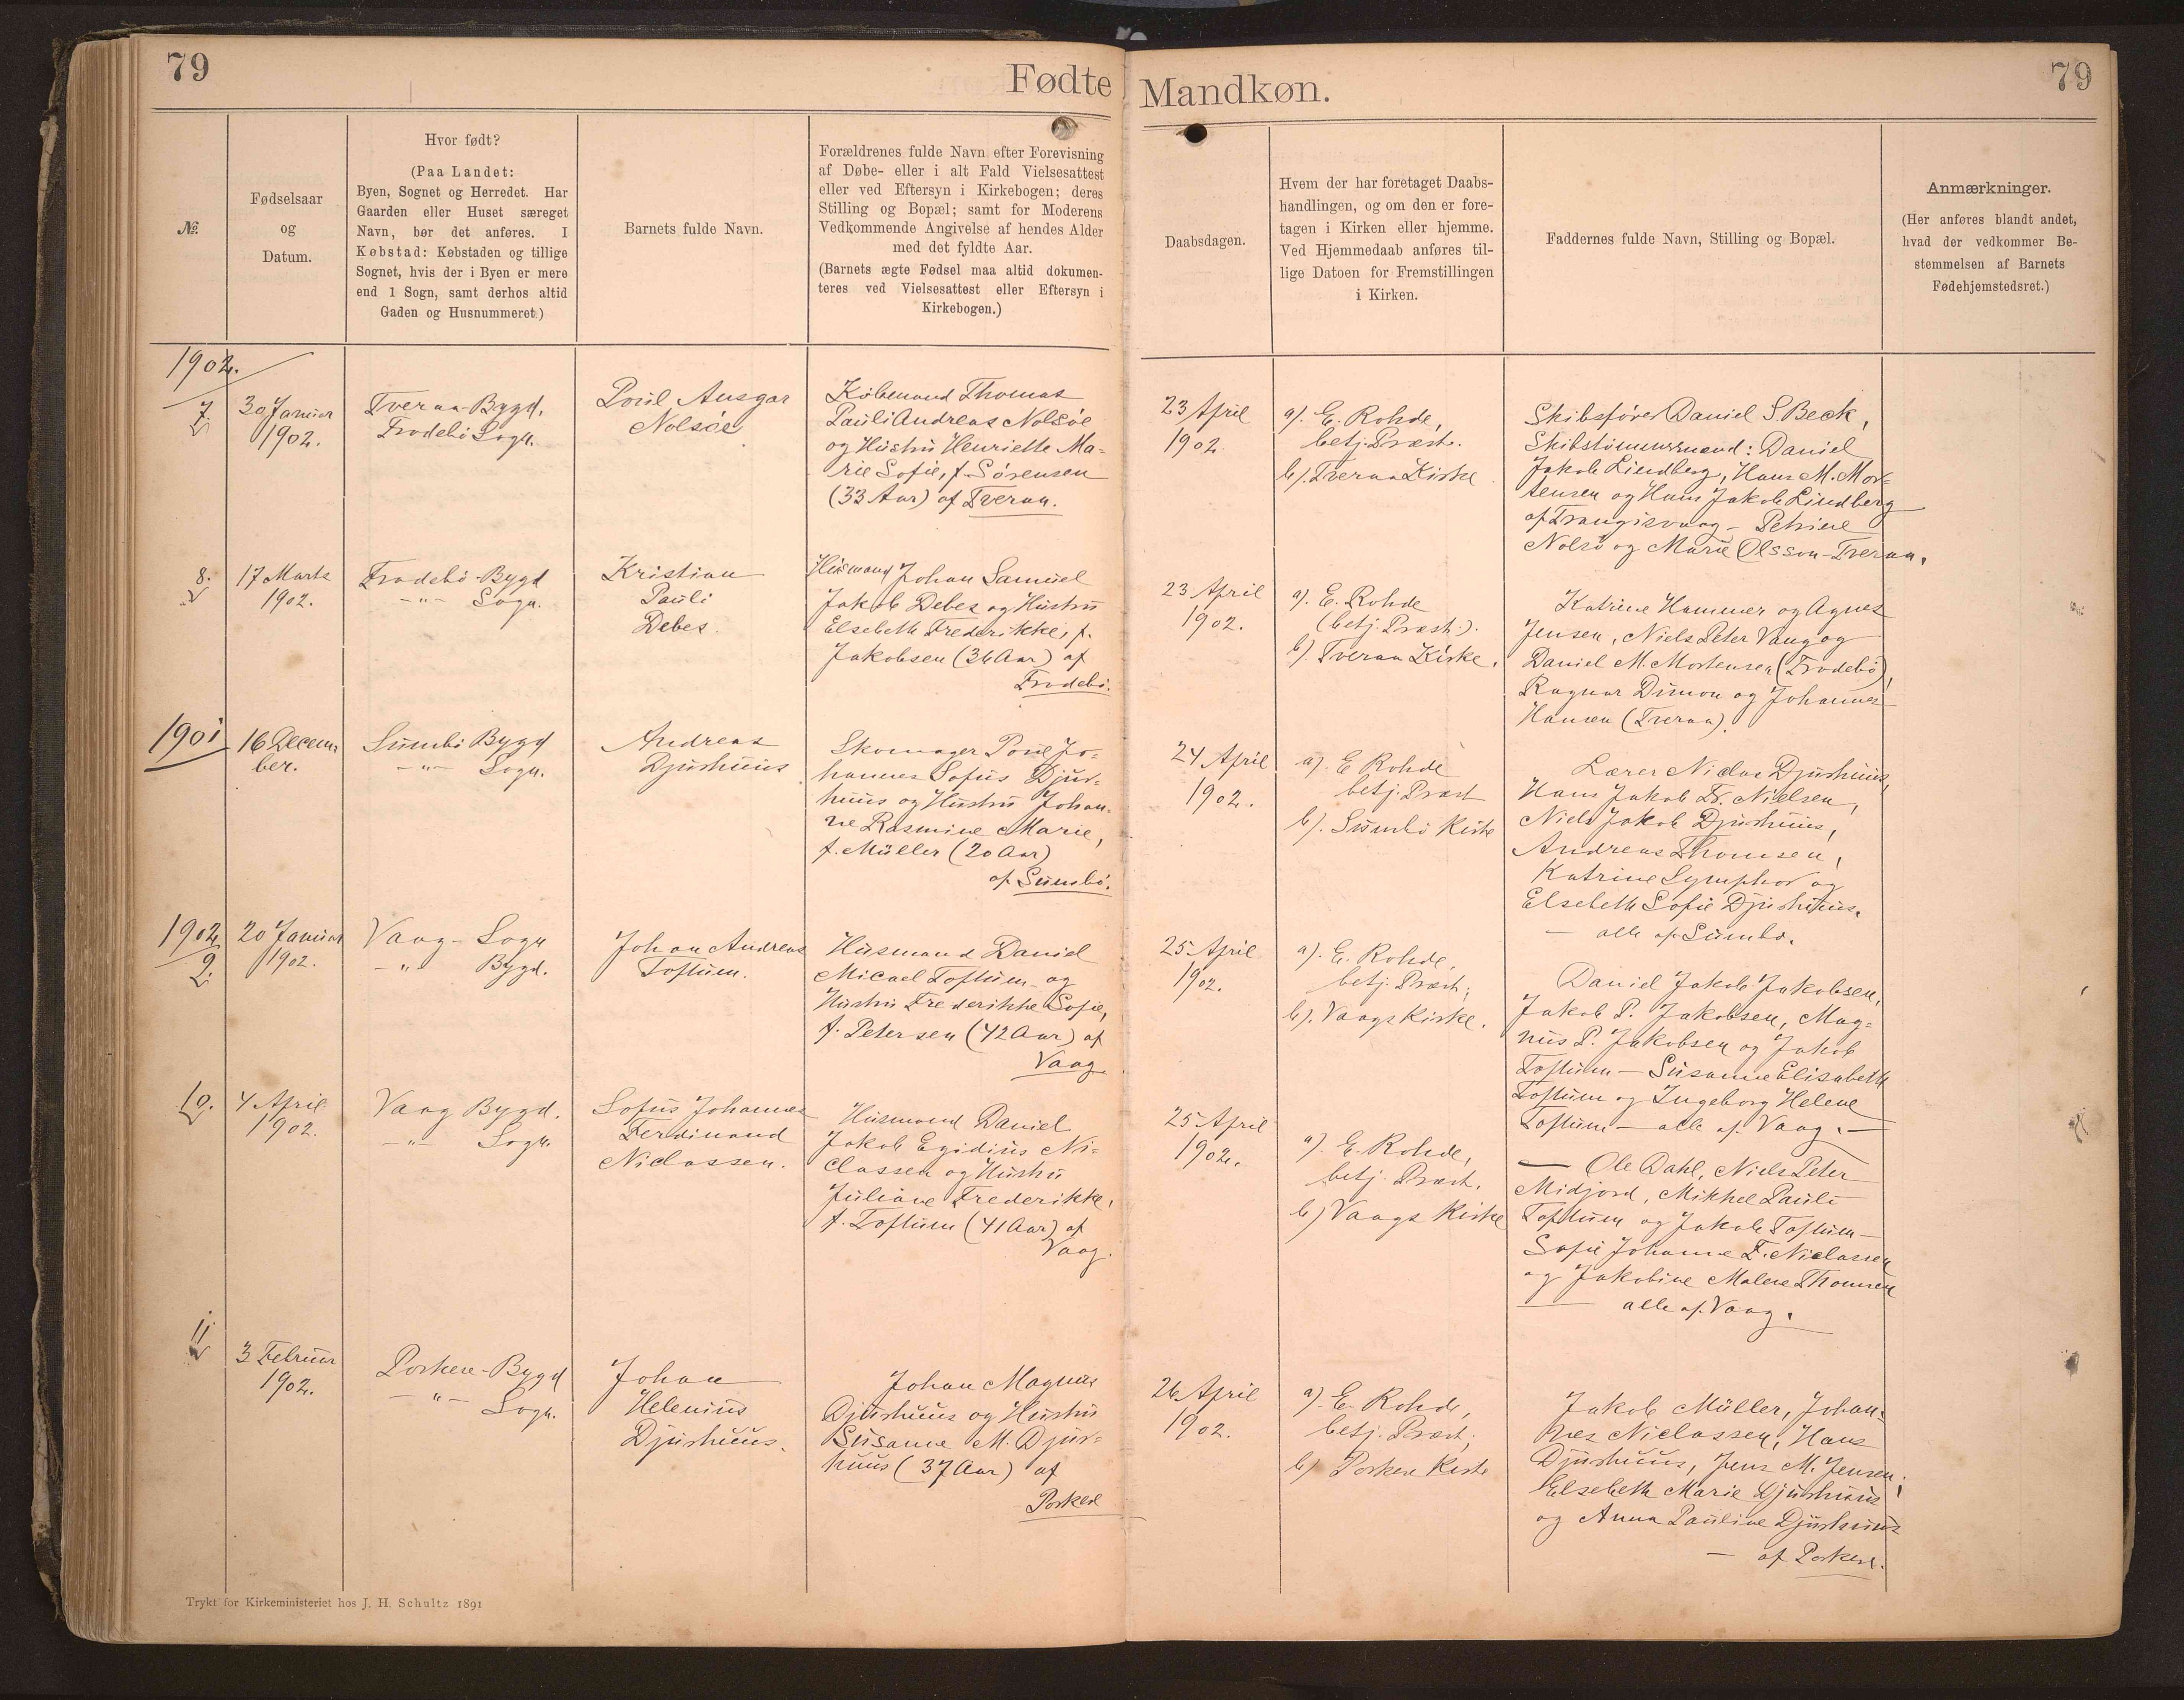 79
Fødte
Mandkøn.
79
No.
Fødselsaar
og
Datum.
Hvor født?
(Paa Landet:
Byen, Sognet og Herredet. Har
Gaarden eller Huset særeget
Navn, bør det anføres. I
Købstad: Købstaden og tillige
Sognet, hvis der i Byen er mere
end 1 Sogn, samt derhos altid
Gaden og Husnummeret.)
Barnets fulde Navn.
Forældrenes fulde Navn efter Forevisning
af Døbe- eller i alt Fald Vielsesattest
eller ved Eftersyn i Kirkebogen; deres
Stilling og Bopæl; samt for Moderens
Vedkommende Angivelse af hendes Alder
med det fyldte Aar.
(Barnets ægte Fødsel maa altid dokumen-
teres ved Vielsesattest eller Eftersyn i
Kirkebogen.)
Daabsdagen.
Hvem der har foretaget Daabs-
handlingen, og om den er fore-
tagen i Kirken eller hjemme.
Ved Hjemmedaab anføres til-
lige Datoen for Fremstillingen
i Kirken.
Faddernes fulde Navn, Stilling og Bopæl.
Anmærkninger.
(Her anføres blandt andet,
hvad der vedkommer Be-
stemmelsen af Barnets
Fødehjemstedsret.)
1902.
7.
30 Januar
1902.
Tveraa-Bygd,
Frodebø Sogn.
Poul Ansgar
Nolsøe
Købmand Thomas
Pauli Andreas Nolsøe
og Hustru Henriette Ma-
rie Sofie, f. Sørensen
(33 Aar) af Tveraa.
23 April
1902.
a). E. Rohde,
betj. Præst.
b). Tveraa Kirke
Skibsfører Daniel S Beck,
Skibstømmermænd: Daniel
Jakob Lindberg, Hans M. Mor-
tensen og Hans Jakob Lindberg
af Trangisvaag - Petrine
Nolsø og Marie Olsson - Tveraa.
8.
17 Marts
1902.
Frodebø-Bygd
-"- Sogn.
Kristian
Pauli
Debes.
Husmand Johan Samuel
Jakob Debes og Hustru
Elsebeth Frederikke, f.
Jakobsen (36 Aar) af
Frodebø.
23 April
1902.
a). E. Rohde
(betj. Præst.).
b) Tveraa Kirke.
Katrine Hammer og Agnes
Jensen, Niels Peter Vang og
Daniel M. Mortensen (Frodebø),
Ragnar Dimon og Johannes
Hansen (Tveraa).
1901
16 Decem-
ber.
Sumbø Bygd
-"- Sogn.
Andreas
Djurhuus
Skomager Poul Jo-
hannes Sofus Djur-
huus og Hustru Johan-
ne Rasmine Marie,
f. Müller (20 Aar)
af Sumbø.
24 April
1902.
a). E Rohde
betj. Præst
b). Sumbø Kirke
Lærer Niclas Djurhuus,
Hans Jakob Fr. Nielsen,
Niels Jakob Djurhuus,
Andreas Thomsen,
Katrine Symphor og
Elsebeth Sofie Djurhuus.
- alle af Sumbø.
1902
9.
20 Januar
1902.
Vaag - Sogn
-"- Bygd.
Johan Andreas
Toftum.
Husmand Daniel
Micael Toftum og
Hustru Frederikke Sofie,
f. Petersen (42 Aar) af
Vaag.
25 April
1902.
a). E. Rohde,
betj. Præst;
b). Vaags Kirke.
Daniel Jakob Jakobsen,
Jakob P. Jakobsen, Mag-
nus P. Jakobsen og Jakob
Toftum - Susanne Elisabeth
Toftum og Ingeborg Helene
Toftum - alle af Vaag. -
10.
4 April
1902.
Vaag Bygd.
-"- Sogn.
Sofus Johannes
Ferdinand
Niclassen.
Husmand Daniel
Jakob Egidius Ni-
classen og Hustru
Juliane Frederikke,
f. Toftum (41 Aar) af
Vaag.
25 April
1902.
a). E. Rohde,
betj. Præst.
b) Vaags Kirke
- Ole Dahl, Niels Peter
Midjord, Mikkel Pauli
Toftum og Jakob Toftum -
Sofie Johanne F. Niclassen
og Jakobine Malene Thomsen
alle af Vaag.
11
3 Februar
1902.
Porkere-Bygd
-"- Sogn.
Johan
Helenius
Djurhuus.
Johan Magnus
Djurhuus og Hustru
Susanne M. Djur-
huus (37 Aar) af
Porkere
26 April
1902.
a). E. Rohde,
betj. Præst;
b) Porkere Kirke
Jakob Müller, Johan-
nes Niclassen, Hans
Djurhuus, Jens M. Jensen,
Elsebeth Marie Djurhuus
og Anna Pauline Djurhuus
- af Porkere.
Trykt for Kirkeministeriet hos J. H. Schultz 1891